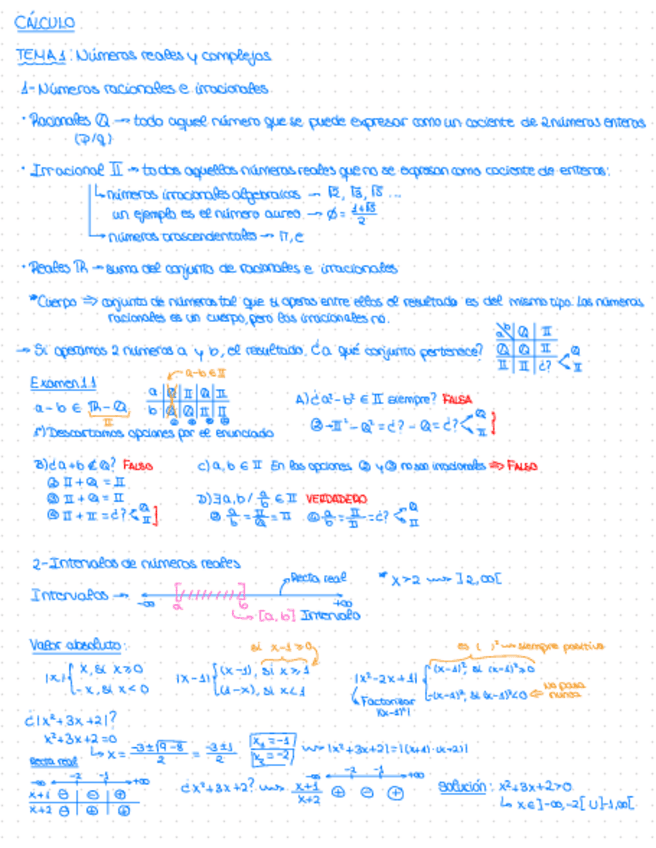 CÁLCULO
TEMA 1: Números reales y complejos
1-Números racionales e irracionales
· Racionales Q → todo aquel número que se puede expresar como un cociente de 2 números enteros
(p/q)
· Irracional II → todos aquellos números reales que no se expresan como cociente de enteros:
números irracionales algebraicos → √2, √3, √5 ...
un ejemplo es el número aureo → ø = 1+√5/2
números trascendentales → π, e
· Reales IR → suma del conjunto de racionales e irracionales
*Cuerpo ⇒ conjunto de números tal que si operas entre ellos el resultado es del mismo tipo. Los números
racionales es un cuerpo, pero los irracionales no.
→ Si operamos 2 números a y b, el resultado, ¿a qué conjunto pertenece?
a b Q II
Q Q II
II II ¿? < Q II
Examen 1.1
a-b ∈ II
a-b ∈ IR-Q
II
a Q II Q II
b Q Q II II
1º) Descartamos opciones por el enunciado
A) ¿a²-b² ∈ II siempre? FALSA
② → II² - Q² = ¿? - Q = ¿? < Q II
B) ¿a+b ∉ Q? FALSO
② II + Q = II
③ II + Q = II
④ II + II = ¿? < Q II
C) a, b ∈ II En las opciones ② y ③ no son irracionales ⇒ FALSO
D) ∃ a, b / a/b ∈ II VERDADERO
② a/b = II/Q = II ④ a/b = II/II = ¿? < Q II
2-Intervalos de números reales
Intervalos → -∞ a b +∞ Recta real
[a, b] Intervalo
* x>2 ]2, ∞[
Valor absoluto:
|x| { x, si x≥0
-x, si x<0
si x-1≥0
|x-1| { (x-1), si x≥1
(1-x), si x<1
es ( )² siempre positivo
|x²-2x+1| { (x-1)², si (x-1)²≥0
-(x-1)², si (x-1)²<0 ← No pasa nunca
Factorizar
|(x-1)²|
¿|x²+3x+2|?
x²+3x+2=0
x = -3±√9-8/2 = -3±1/2 x₁ = -1 x₂ = -2 |x²+3x+2| = |(x+1)·(x+2)|
Recta real
-∞ -2 -1 +∞
x+1 ⊖ ⊖ ⊕
x+2 ⊖ ⊕ ⊕
¿x²+3x+2? x+1/x+2
-∞ -2 -1 +∞
⊕ ⊖ ⊕
Solución: x²+3x+2>0
x ∈ ]-∞,-2[ U ]-1,∞[